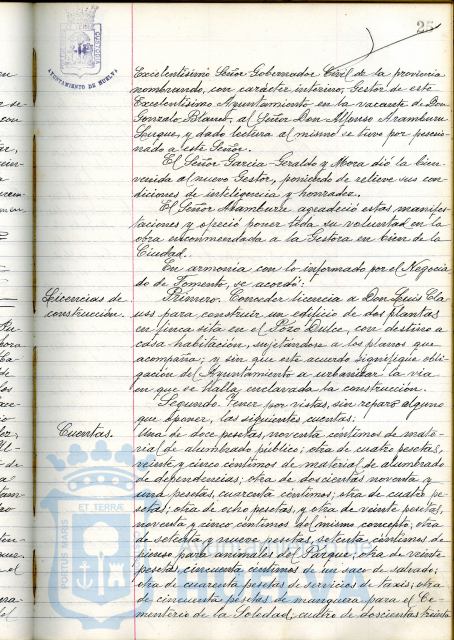 25
AYUNTAMIENTO DE HUELVA
Excelentísimo Señor Gobernador Civil de la provincia
nombrando, con carácter interino, Gestor de este
Excelentísimo Ayuntamiento en la vacante de Don
Gonzalo Blanco, al Señor Don Alfonso Aramburu
y dado lectura al mismo se tuvo por posesio-
nado a este Señor.
El Señor Garcia Geraldo y Mora dió la bien-
venida al nuevo Gestor, poniendo de relieve sus con-
diciones de inteligencia y honradez.
El Señor Aramburu agradeció estas manifes-
taciones y ofreció poner toda su voluntad en la
obra encomendada a la Gestora en bien de la
Ciudad.
En armonia con lo informado por el Negocia-
do de Fomento, se acordó:
Licencias de
construcción.
Primero. Conceder licencia a Don Luis Cla-
uss para construir un edificio de dos plantas
en finca sita en el Pozo Dulce, con destino a
casa habitación, sujetándose a los planos que
acompaña; y sin que este acuerdo signifique obli-
gación del Ayuntamiento a urbanizar la via
en que se halla enclavada la construcción.
Segundo. Tener por vistas, sin reparo alguno
que oponer, las siguientes cuentas:
Cuentas.
Una de doce pesetas, noventa centimos de mate-
rial de alumbrado público; otra de cuatro pesetas,
veinte y cinco centimos de material de alumbrado
de dependencias; otra de doscientas noventa y
una pesetas, cuarenta centimos; otra de cuatro pe-
setas; otra de ocho pesetas, y otra de veinte pesetas,
noventa y cinco centimos del mismo concepto; otra
de setenta y nueve pesetas, setenta centimos de
pienso para animales del Parque; otra de veinte
pesetas, cincuenta centimos de un saco de salvado;
otra de cuarenta pesetas de servicios de taxis; otra
de cincuenta pesetas de manguera para el Ce-
menterio de la Soledad, cuatro de doscientas treinta
PORTUS MARIS ET TERRAE